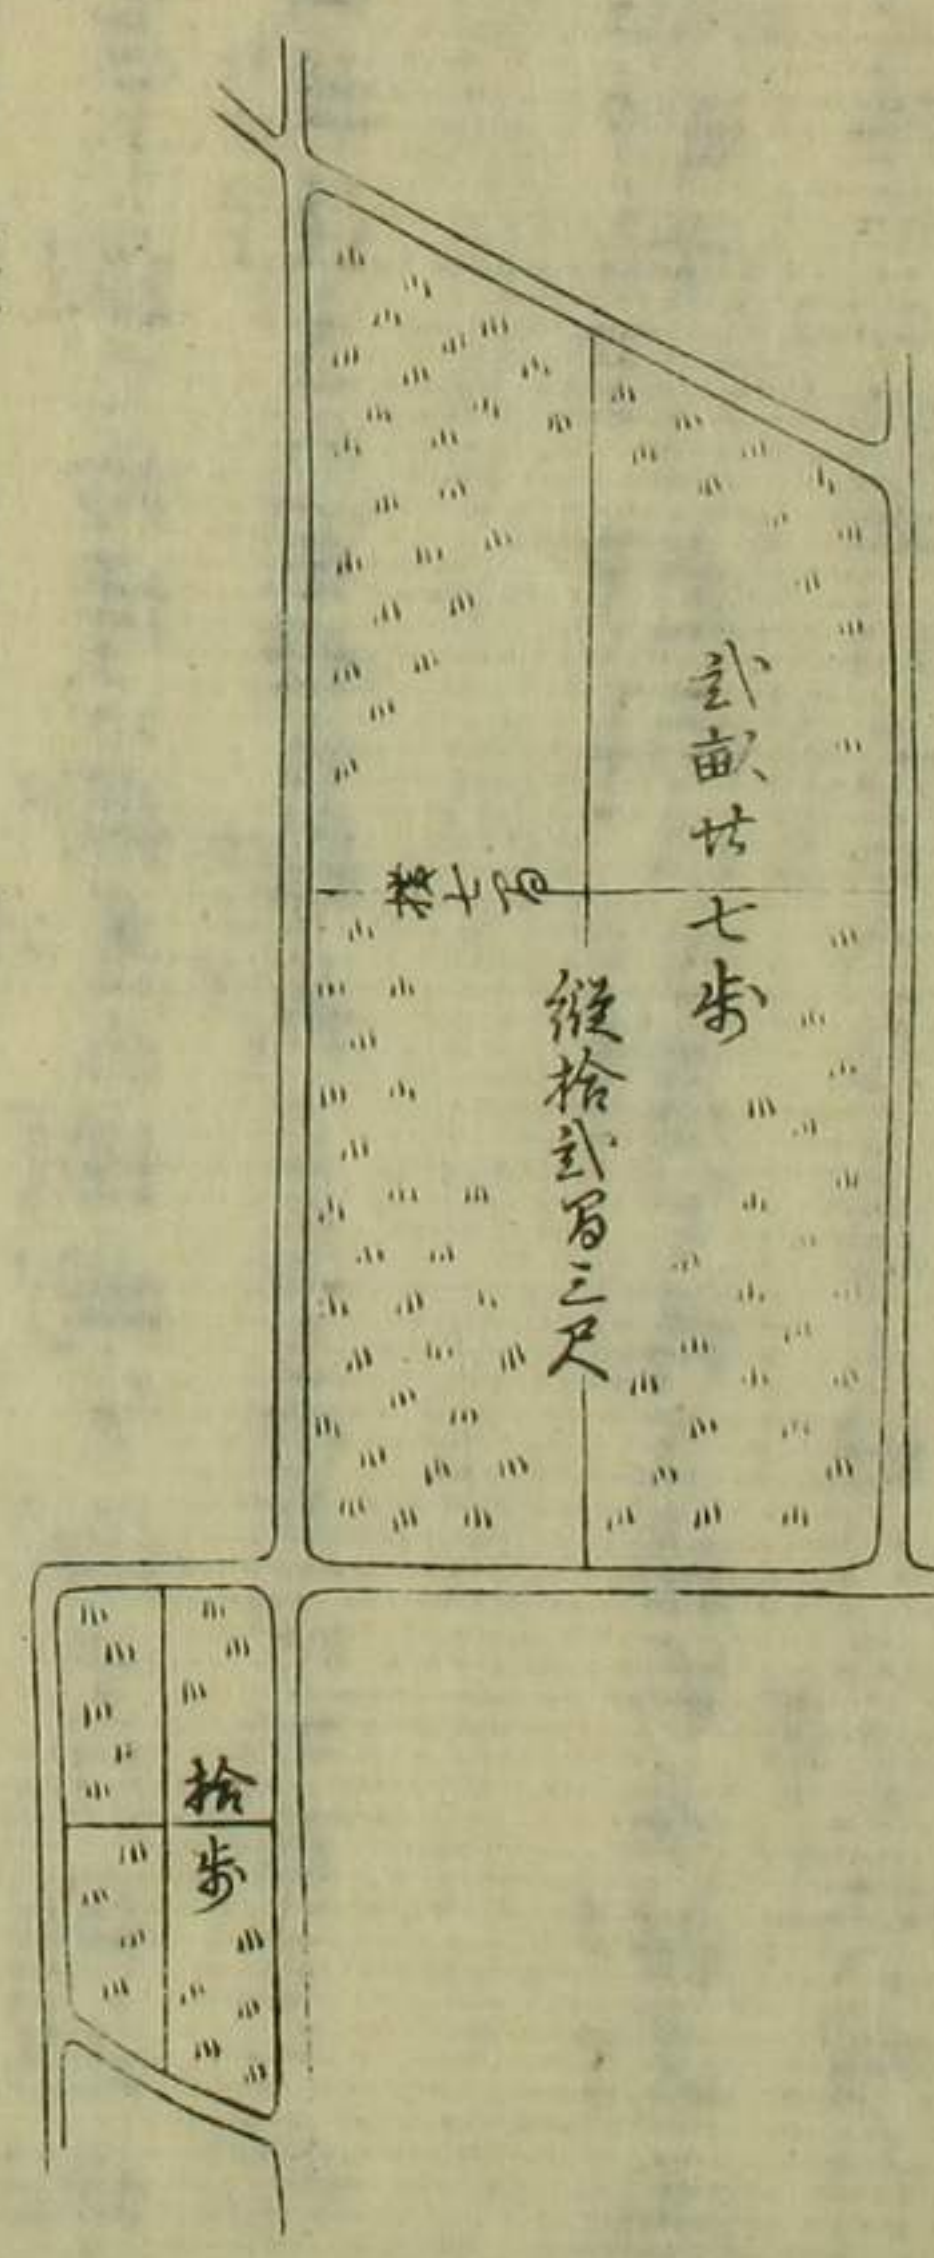 弐畝廿七歩
縦拾弐間三尺
横七間
拾歩